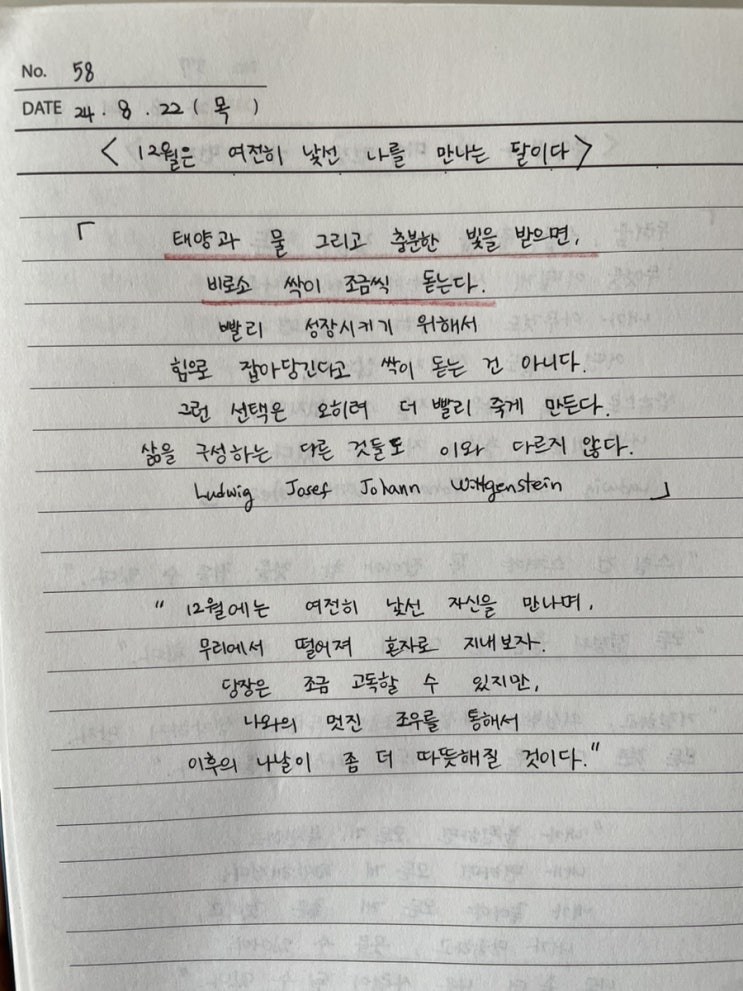 No. 58
DATE 24. 8. 22 ( 목 )
< 12월은 여전히 낯선 나를 만나는 달이다 >
「 태양과 물 그리고 충분한 빛을 받으면,
비로소 싹이 조금씩 돋는다.
빨리 성장시키기 위해서
힘으로 잡아당긴다고 싹이 돋는 건 아니다.
그런 선택은 오히려 더 빨리 죽게 만든다.
삶을 구성하는 다른 것들도 이와 다르지 않다.
Ludwig Josef Johann Wittgenstein 」
" 12월에는 여전히 낯선 자신을 만나며,
무리에서 떨어져 혼자로 지내보자.
당장은 조금 고독할 수 있지만,
나와의 멋진 조우를 통해서
이후의 나날이 좀 더 따뜻해질 것이다. "